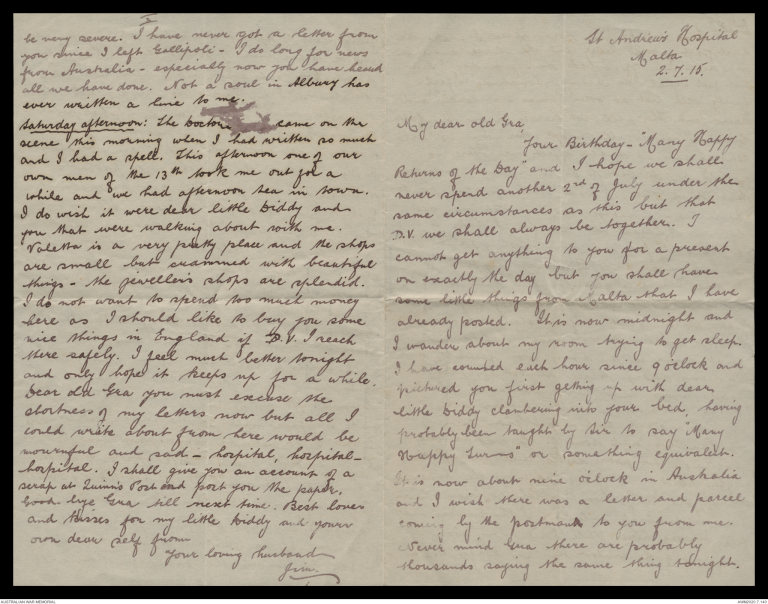 St Andrew's Hospital
Malta
2.7.15.
My dear old Gra,
Your Birthday - "Many Happy
Returns of the Day" and I hope we shall
never spend another 2nd of July under the
same circumstances as this but that
D.V. we shall always be together. I
cannot get anything to you for a present
on exactly the day but you shall have
some little things from Malta that I have
already posted. It is now midnight and
I wander about my room trying to get sleep.
I have counted each hour since 9 oclock and
pictured you first getting up with dear
little Diddy clambering into your bed, having
probably been taught by to say "Many
Happy Turns" or something equivalent.
It is now about nine o'clock in Australia
and I wish there was a letter and parcel
coming by the postman to you from me.
Never mind Gra there are probably
thousands saying the same thing tonight.
be very severe. I have never got a letter from
you since I left Gallipoli - I do long for news
from Australia - especially now you have heard
all we have done. Not a soul in Albury has
ever written a line to me.
Saturday afternoon: The Doctors came on the
scene this morning when I had written so much
and I had a spell. This afternoon one of our
own men of the 13th took me out for a
while and we had afternoon tea in town.
I do wish it were dear little Diddy and
you that were walking about with me.
Valetta is a very pretty place and the shops
are small but crammed with beautiful
things - the jeweller's shops are splendid.
I do not want to spend too much money
here as I should like to buy you some
nice things in England if D.V. I reach
there safely. I feel much better tonight
and only hope it keeps up for a while.
Dear old Gra you must excuse the
shortness of my letters now but all I
could write about from here would be
mournful and sad - hospital, hospital -
hospital. I shall give you an account of a
scrap at Quinn's Post and post you the paper.
Good bye Gra till next time. Best love
and kisses for my little Diddy and your
own dear self from
Your loving husband
Jim.
AUSTRALIAN WAR MEMORIAL